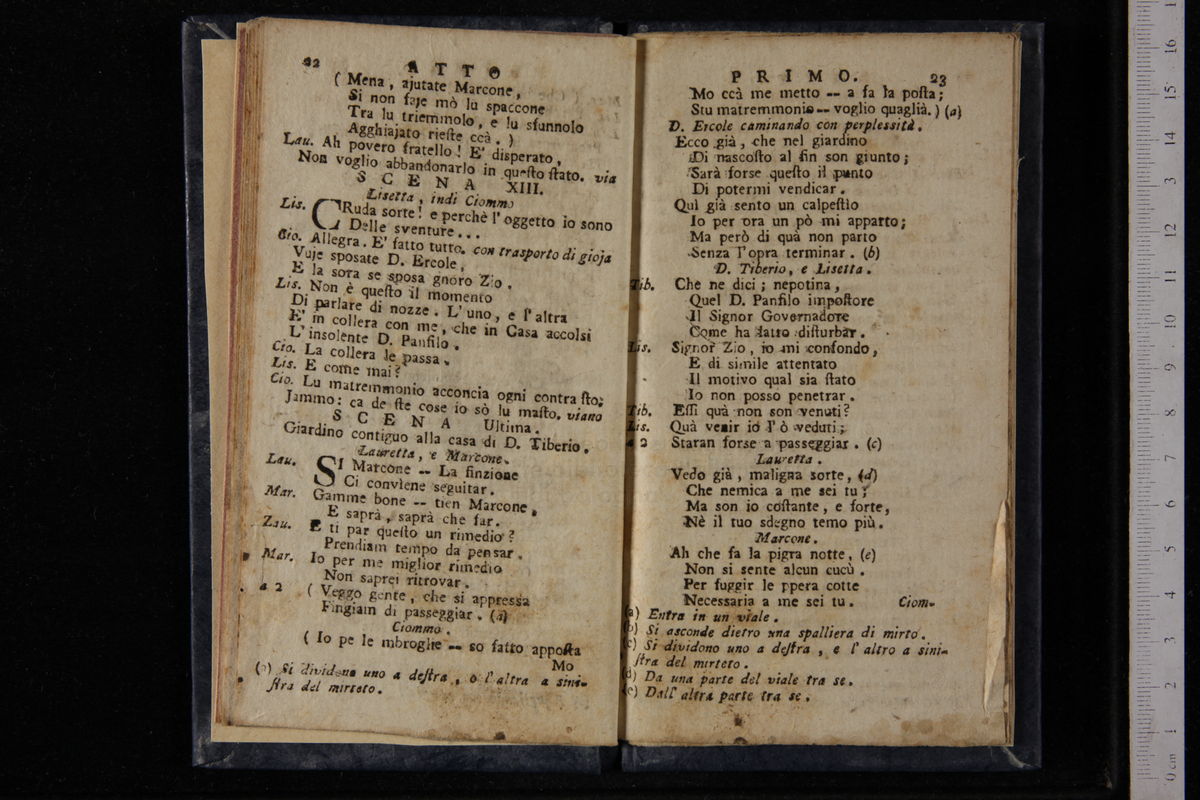 22 ATTO
( Mena, ajutate Marcone,
Si non faje mò lu spaccone
Tra lu triemmolo, e lu sfunnolo
Agghiajato rieſte ccà. )
Lau. Ah povero fratello! E' disperato,
Non voglio abbandonarlo in queſto ſtato. via
SCENA XIII.
Lisetta, indi Ciommo
Lis. CRuda sorte! e perchè l'oggetto io sono
Delle sventure...
Cio. Allegra. E' fatto tutto. con trasporto di gioja
Vuje sposate D. Ercole,
E la sora se sposa gnoro Zio.
Lis. Non è queſto il momento
Di parlare di nozze. L'uno, e l'altra
E' in collera con me, che in Casa accolsi
L'insolente D. Panfilo.
Cio. La collera le passa.
Lis. E come mai?
Cio. Lu matremmonio acconcia ogni contraſto;
Jammo: ca de ſte cose io sò lu maſto. viano
SCENA Ultima.
Giardino contiguo alla casa di D. Tiberio.
Lauretta, e Marcone.
Lau. SI Marcone -- La finzione
Ci conviene seguitar.
Mar. Gamme bone -- tien Marcone,
E saprà, saprà che far.
Lau. E ti par queſto un rimedio?
Prendiam tempo da pensar.
Mar. Io per me miglior rimedio
Non saprei ritrovar.
a 2 ( Veggo gente, che si appressa
Fingiam di passeggiar. (a)
Ciommo.
( Io pe le mbroglie -- so fatto appoſta
Mo
(a) Si dividono uno a deſtra, e l'altra a sini-
ſtra del mirteto.
PRIMO. 23
Mo ccà me metto -- a fa la poſta;
Stu matremmonio -- voglio quaglià.) (a)
D. Ercole caminando con perplessità.
Ecco già, che nel giardino
Di nascoſto al fin son giunto;
Sarà forse queſto il punto
Di potermi vendicar.
Quì già sento un calpeſtìo
Io per ora un pò mi apparto;
Ma però di quà non parto
Senza l'opra terminar. (b)
D. Tiberio, e Lisetta.
Tib. Che ne dici; nepotina,
Quel D. Panfilo impoſtore
Il Signor Governadore
Come ha fatto diſturbar.
Lis. Signor Zio, io mi confondo,
E di simile attentato
Il motivo qual sia ſtato
Io non posso penetrar.
Tib. Eſſi quà non son venuti?
Lis. Quà venir io l'ò veduti;
a 2 Staran forse a passeggiar. (c)
Lauretta.
Vedo già, maligna sorte, (d)
Che nemica a me sei tu;
Ma son io coſtante, e forte,
Nè il tuo sdegno temo più.
Marcone.
Ah che fa la pigra notte, (e)
Non si sente alcun cucù.
Per fuggir le ppera cotte
Necessaria a me sei tu. Ciom-
(a) Entra in un viale.
(b) Si asconde dietro una spalliera di mirto.
(c) Si dividono uno a deſtra, e l'altro a sini-
ſtra del mirteto.
(d) Da una parte del viale tra se.
(e) Dall'altra parte tra se.
16
15
14
13
12
11
10
9
8
7
6
5
4
3
2
1
0 cm